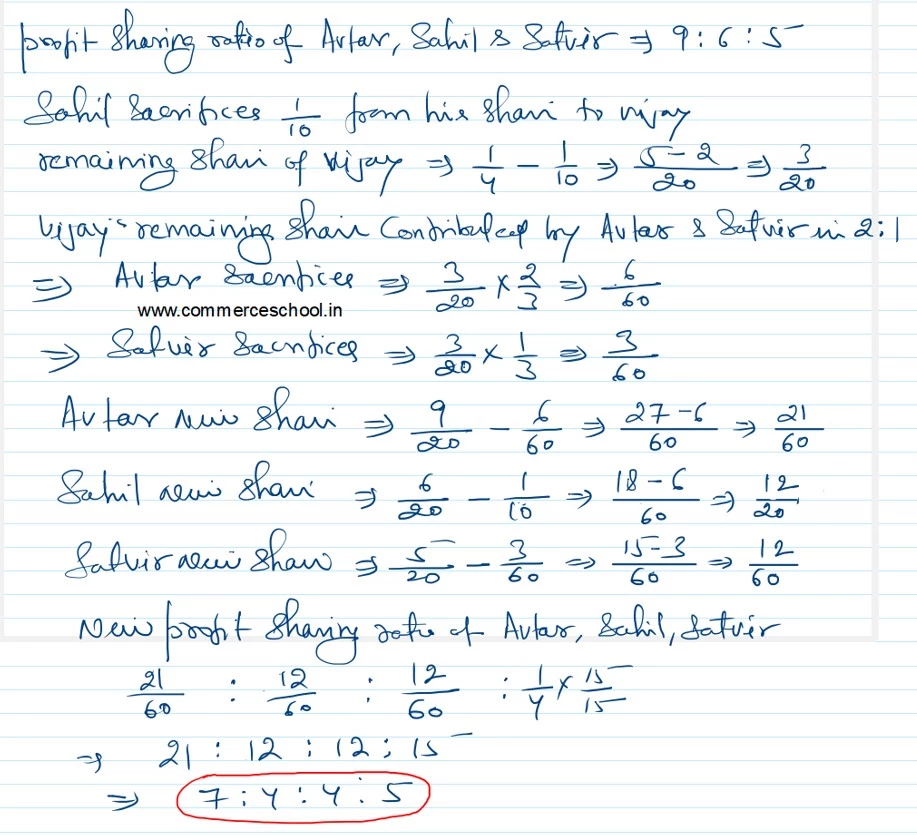 profit sharing ratio of Avtar, Sahil & Satvir ⇒ 9 : 6 : 5
Sahil Sacrifices 1/10 from his share to vijay
remaining share of vijay ⇒ 1/4 - 1/10 ⇒ 5-2/20 ⇒ 3/20
Vijay's remaining share Contributed by Avtar & Satvir in 2:1
⇒ Avtar Sacrifices ⇒ 3/20 × 2/3 ⇒ 6/60
www.commerceschool.in
⇒ Satvir Sacrifices ⇒ 3/20 × 1/3 ⇒ 3/60
Avtar new share ⇒ 9/20 - 6/60 ⇒ 27-6/60 ⇒ 21/60
Sahil new share ⇒ 6/20 - 1/10 ⇒ 18-6/60 ⇒ 12/20
Satvir new share ⇒ 5/20 - 3/60 ⇒ 15-3/60 ⇒ 12/60
New profit sharing ratio of Avtar, Sahil, Satvir
21/60 : 12/60 : 12/60 : 1/4 × 15/15
⇒ 21 : 12 : 12 : 15
⇒ 7 : 4 : 4 : 5